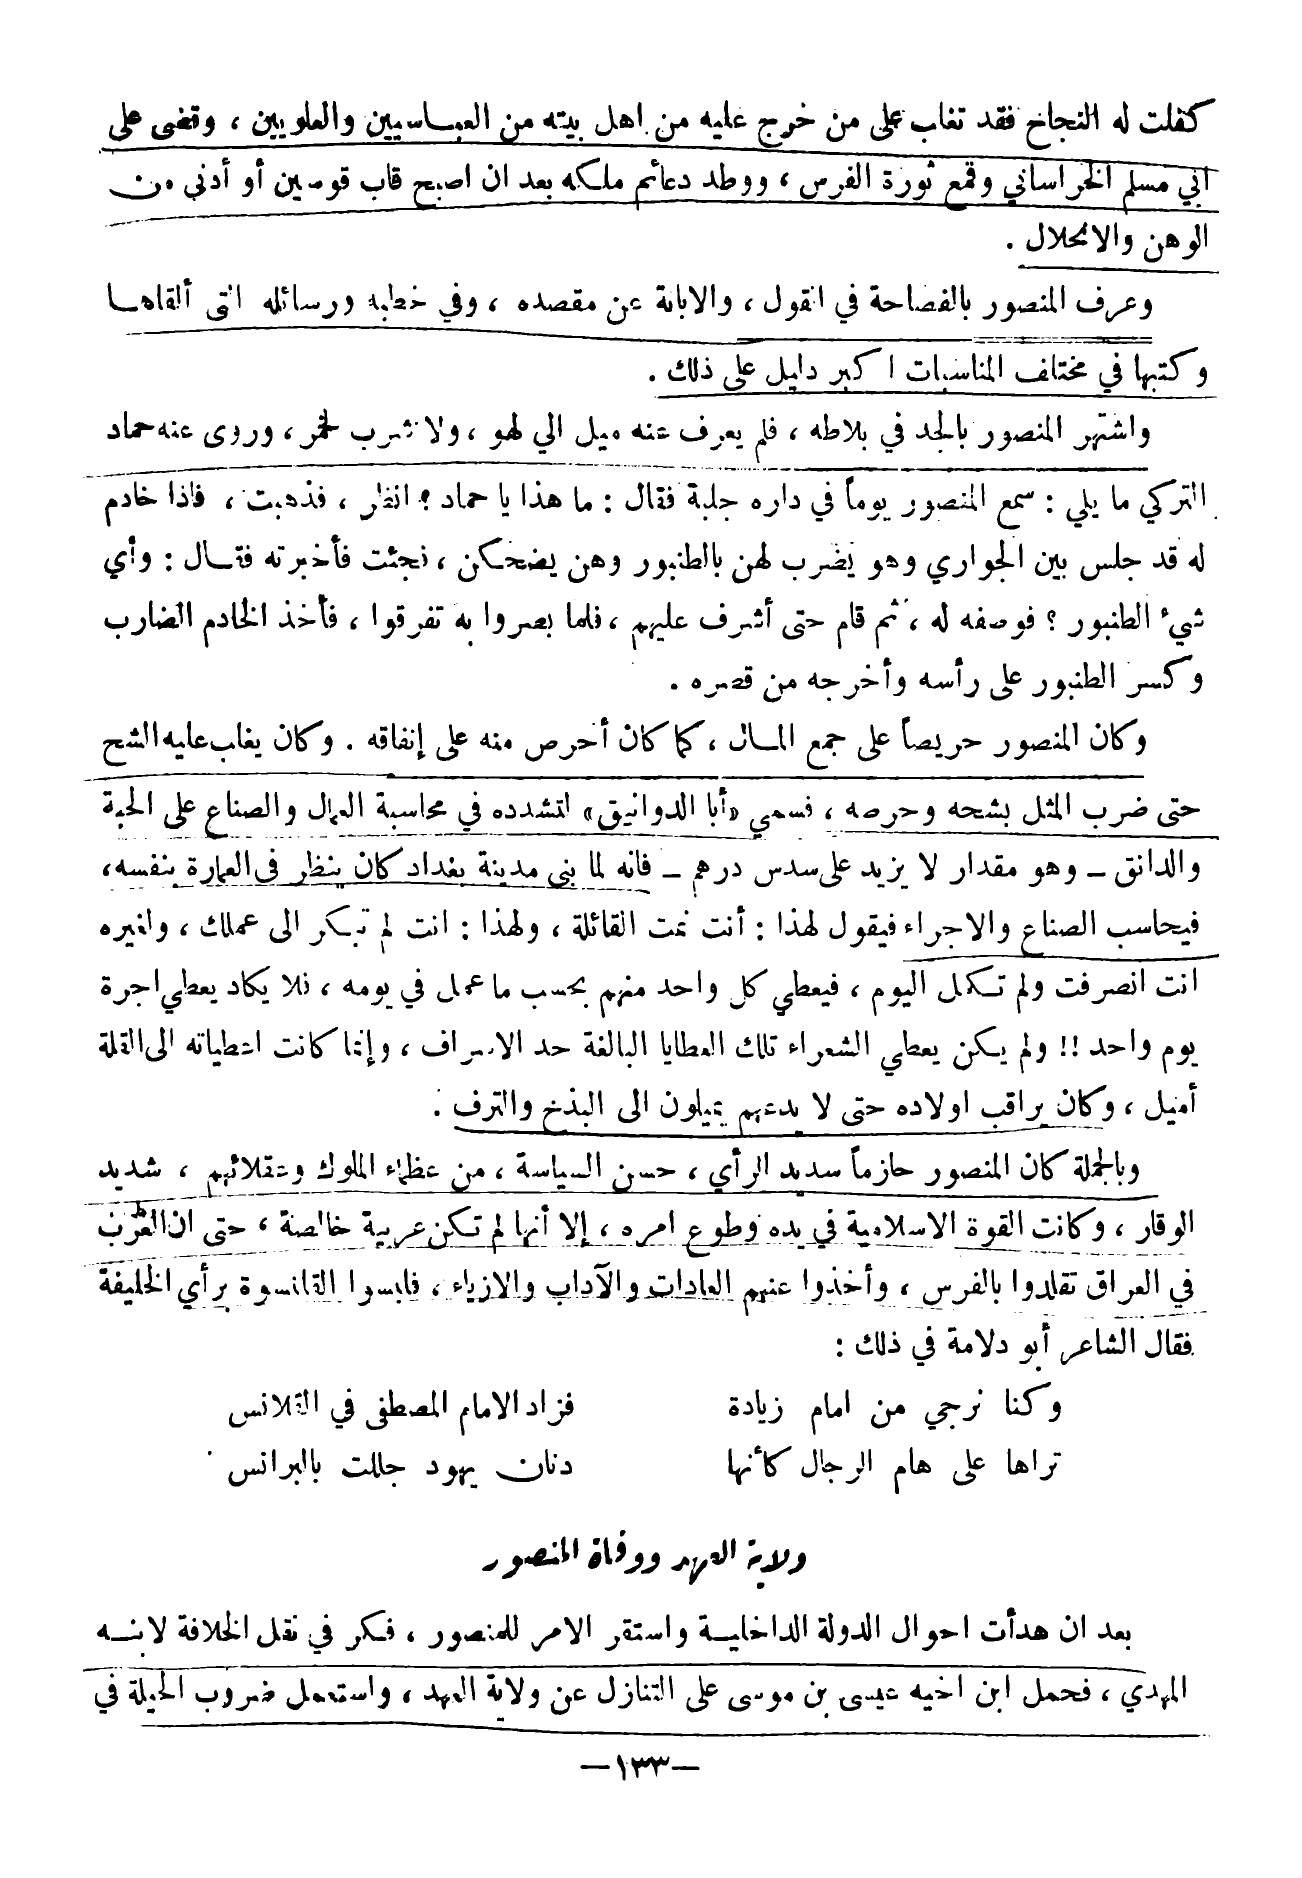 كفلت له النجاح فقد تغلب على من خرج عليه من اهل بيته من العباسيين والعلويين ، وقضى على
ابي مسلم الخراساني وقمع ثورة الفرس ، ووطد دعائم ملكه بعد ان اصبح قاب قوسين أو أدنى من
الوهن والانحلال .
وعرف المنصور بالفصاحة في القول ، والابانة عن مقصده ، وفي خطبه ورسائله التي ألقاها
وكتبها في مختلف المناسبات اكبر دليل على ذلك .
واشتهر المنصور بالجد في بلاطه ، فلم يعرف عنه ميل الي لهو ، ولا شرب لخمر ، وروى عنه حماد
التركي ما يلي : سمع المنصور يوماً في داره جلبة فقال : ما هذا يا حماد ؟ انظر ، فذهبت ، فاذا خادم
له قد جلس بين الجواري وهو يضرب لهن بالطنبور وهن يضحكن ، فجئت فأخبرته فقال : وأي
شيء الطنبور ؟ فوصفه له ، ثم قام حتى أشرف عليهم ، فلما بصروا به تفرقوا ، فأخذ الخادم الضارب
وكسر الطنبور على رأسه وأخرجه من قصره .
وكان المنصور حريصاً على جمع المال ، كما كان أحرص منه على إنفاقه . وكان يغلب عليه الشح
حتى ضرب المثل بشحه وحرصه ، فسمي «أبا الدوانيق» لتشدده في محاسبة العمال والصناع على الحبة
والدانق – وهو مقدار لا يزيد على سدس درهم – فانه لما بنى مدينة بغداد كان ينظر في العمارة بنفسه،
فيحاسب الصناع والاجراء فيقول لهذا : أنت نمت القائلة ، ولهذا : انت لم تبكر الى عملك ، ولغيره
انت انصرفت ولم تكمل اليوم ، فيعطي كل واحد منهم بحسب ما عمل في يومه ، فلا يكاد يعطي اجرة
يوم واحد !! ولم يكن يعطي الشعراء تلك العطايا البالغة حد الاسراف ، وإنما كانت اعطياته الى القلة
أميل ، وكان يراقب اولاده حتى لا يدعهم يميلون الى البذخ والترف .
وبالجملة كان المنصور حازماً سديد الرأي ، حسن السياسة ، من عظماء الملوك وعقلائهم ، شديد
الوقار ، وكانت القوة الاسلامية في يده وطوع امره ، إلا أنها لم تكن عربية خالصة ، حتى ان العرب
في العراق تقلدوا بالفرس ، وأخذوا عنهم العادات والآداب والازياء ، فلبسوا القلنسوة برأي الخليفة
فقال الشاعر أبو دلامة في ذلك :
وكنا نرجي من امام زيادة فزاد الامام المصطفى في القلانس
تراها على هام الرجال كأنها دنان يهود جللت بالبرانس
ولاية العهد ووفاة المنصور
بعد ان هدأت احوال الدولة الداخلية واستقر الامر للمنصور ، فكر في نقل الخلافة لابنه
المهدي ، فحمل ابن اخيه عيسى بن موسى على التنازل عن ولاية العهد ، واستعمل ضروب الحيلة في
–١٣٣–